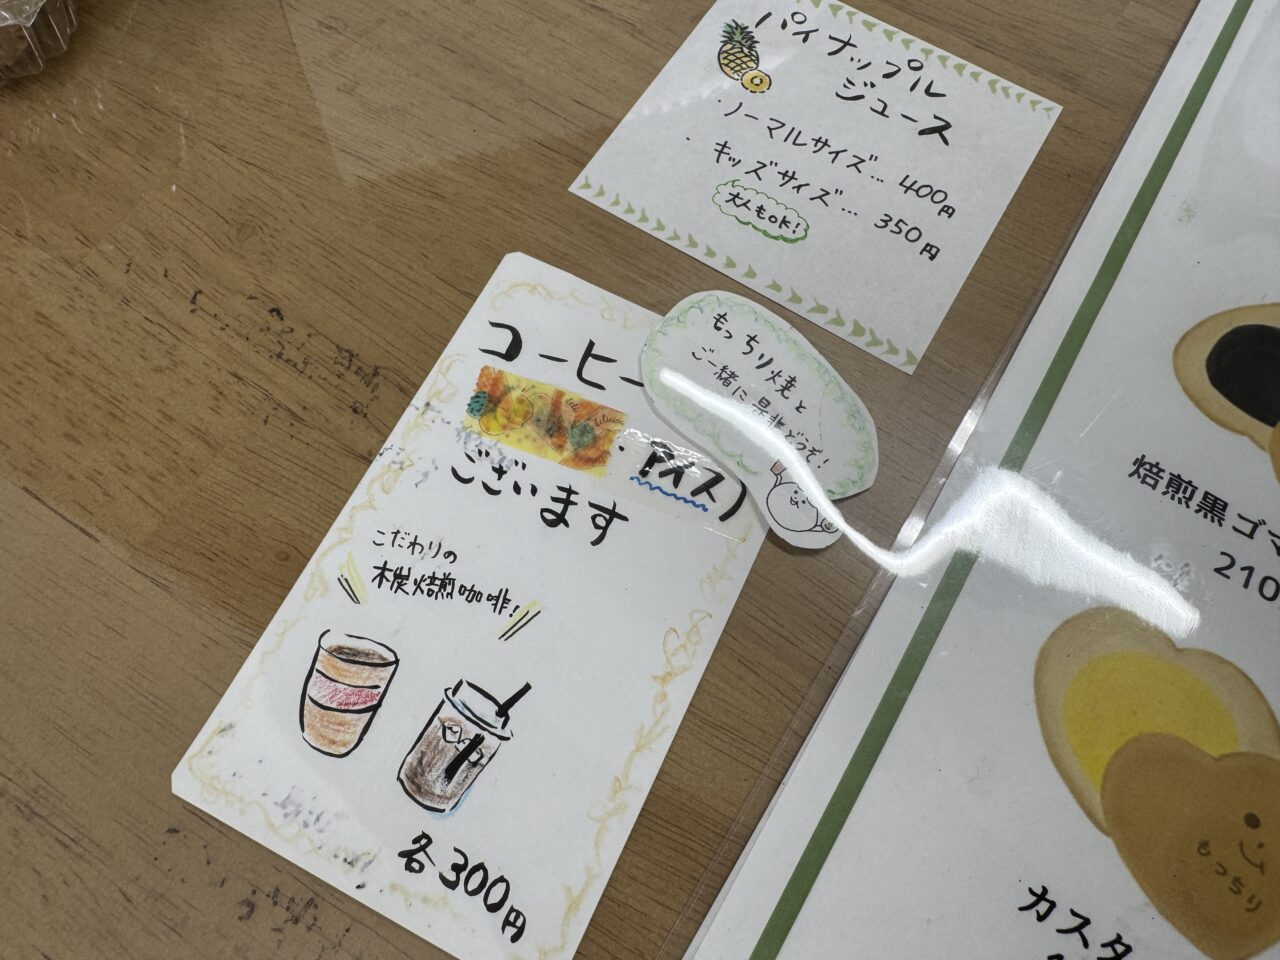 パイナップル
ジュース
・ノーマルサイズ… 400円
・キッズサイズ… 350円
大人もOK!
もっちり焼と
ご一緒に是非どうぞ!
コーヒー
・アイス)
ございます
こだわりの
木炭焙煎珈琲!
各300円
焙煎黒ゴマ
210
もっちり
カスタ